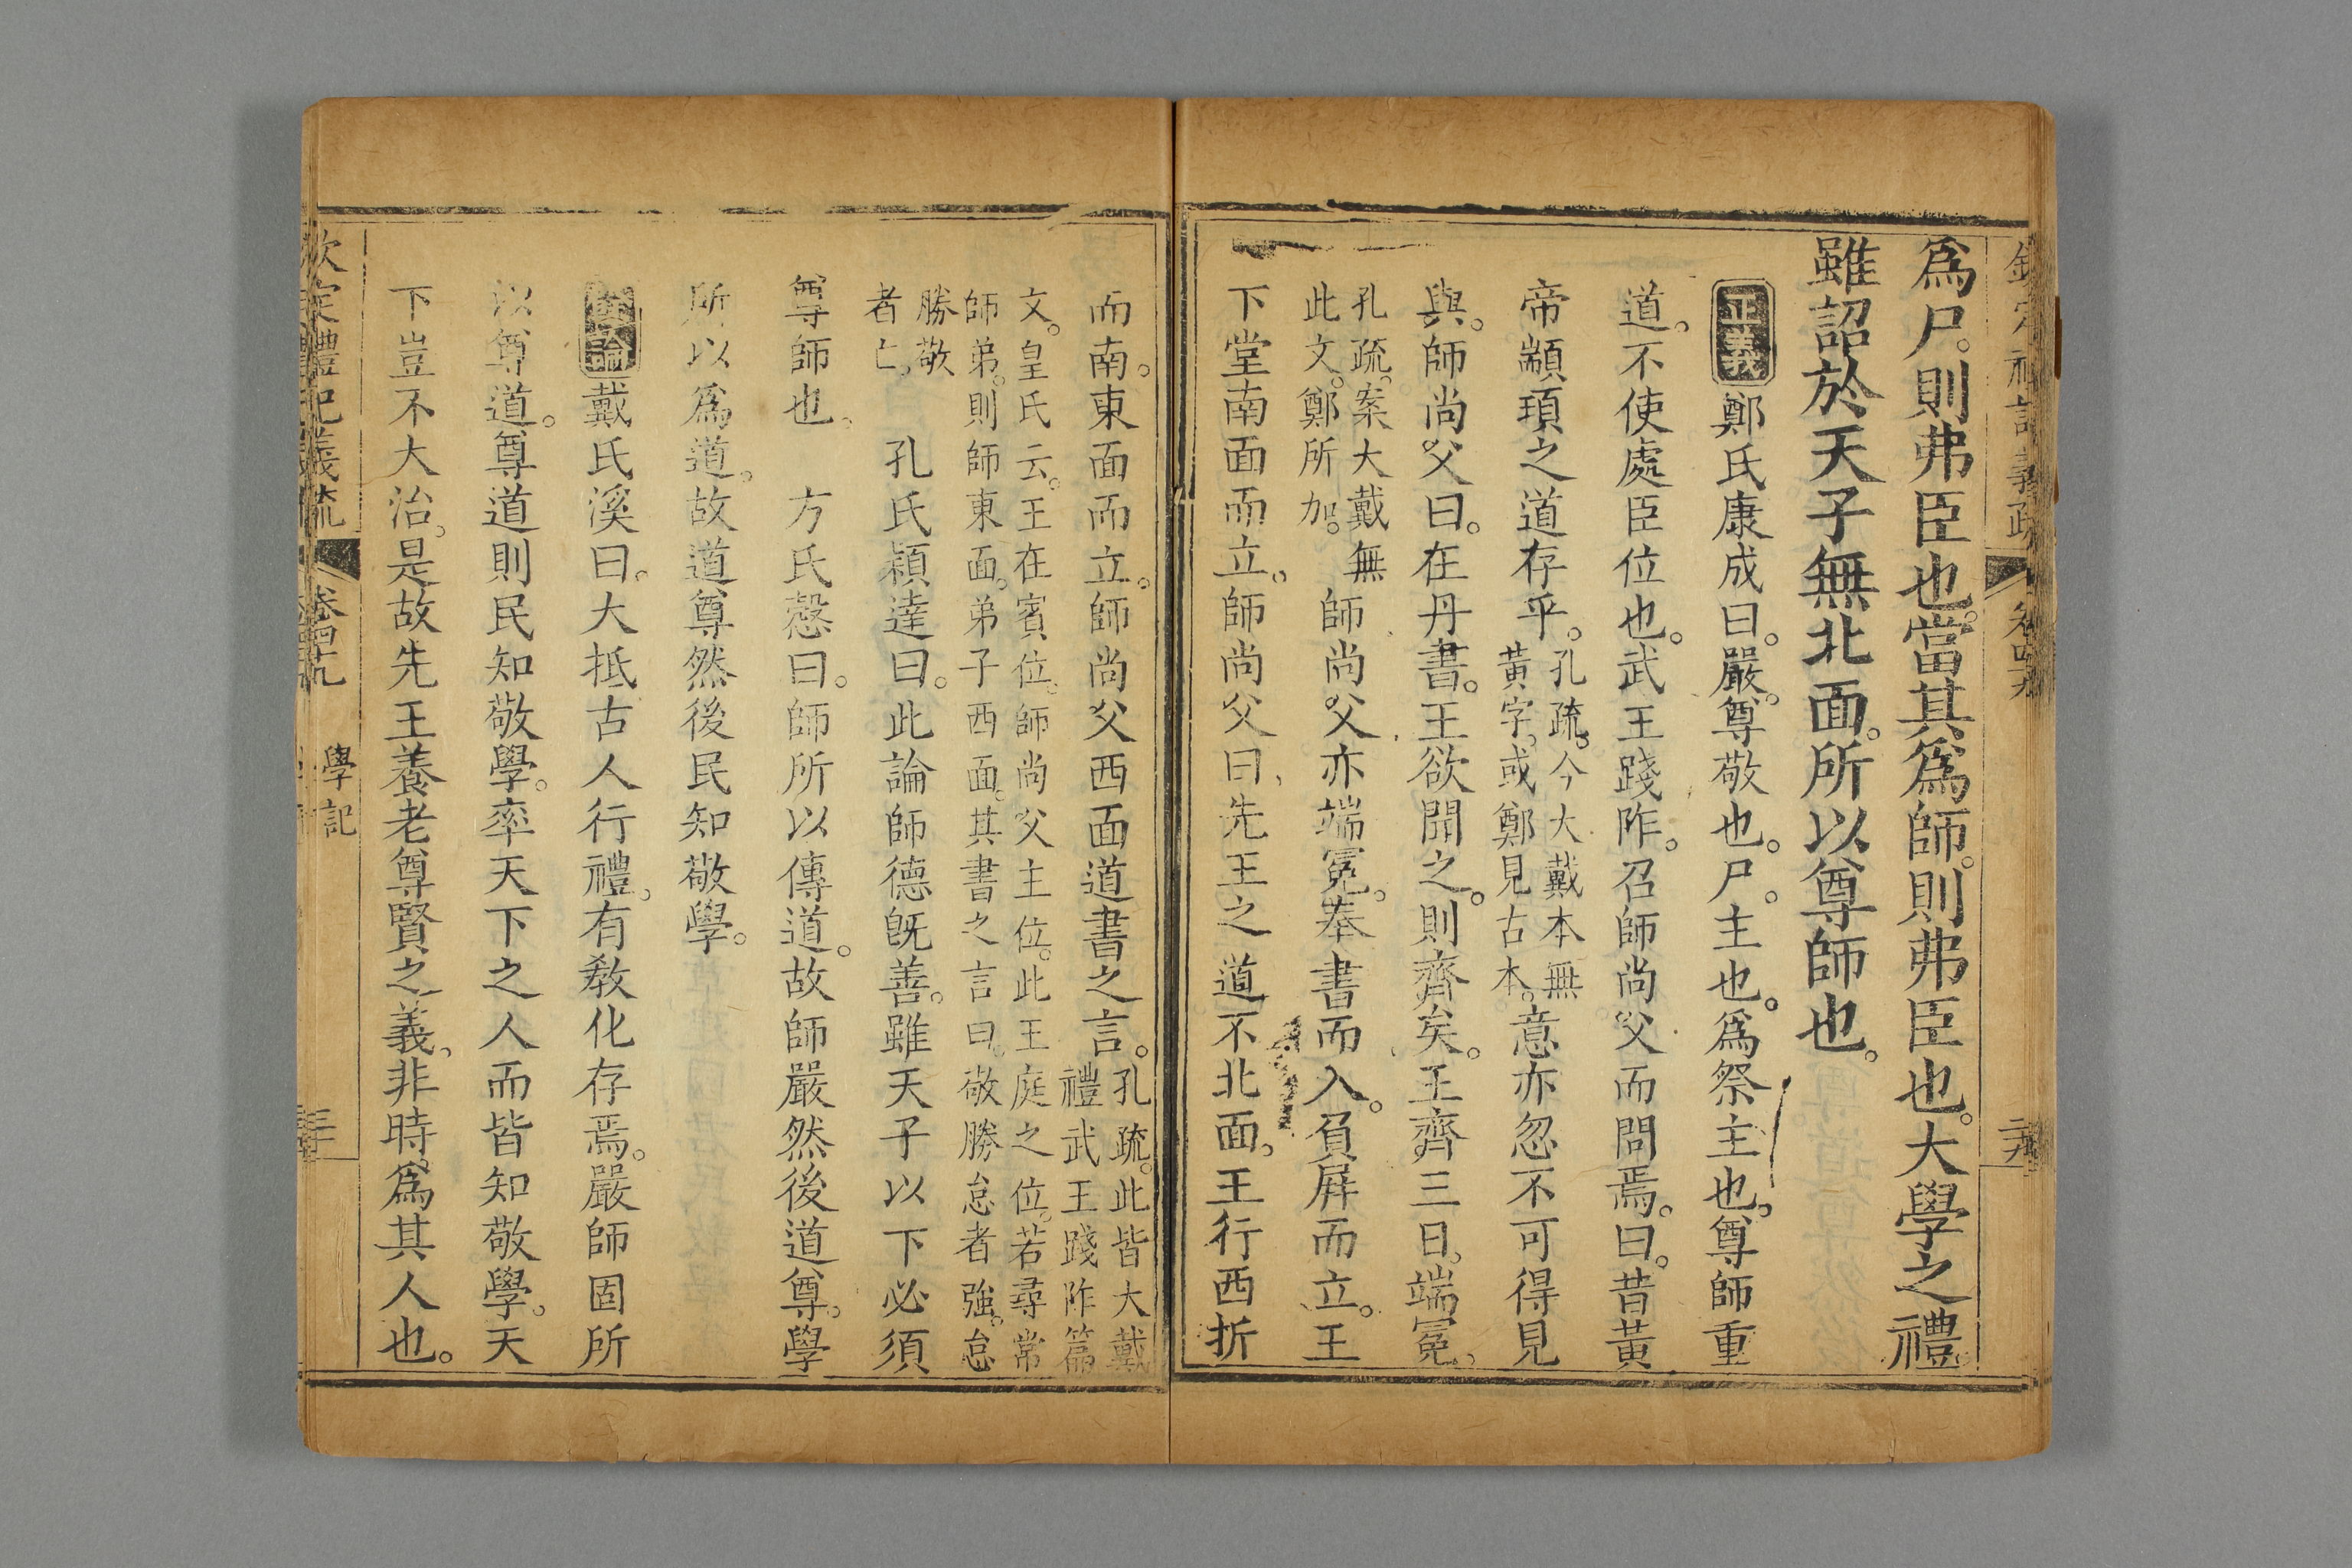 爲尸。則弗臣也。當其爲師。則弗臣也。大學之禮。
雖詔於天子無北面。所以尊師也。
正義 鄭氏康成曰。嚴。尊敬也。尸。主也。爲祭主也。尊師重
道。不使處臣位也。武王踐阼。召師尚父而問焉。曰。昔黃
帝顓頊之道存乎。孔疏。今大戴本無黃字。或鄭見古本。意亦忽不可得見
與。師尚父曰。在丹書。王欲聞之。則齊矣。王齊三日。端冕。
孔疏。案大戴無此文。鄭所加。師尚父亦端冕。奉書而入。負屏而立。王
下堂南面而立。師尚父曰、先王之道不北面。王行西折
而南。東面而立。師尚父西面道書之言。孔疏。此皆大戴禮武王踐阼篇
文。皇氏云。王在賓位。師尚父主位。此王庭之位。若尋常師弟。則師東面。弟子西面。其書之言曰。敬勝怠者強。怠
勝敬者亡。 孔氏穎達曰。此論師德旣善。雖天子以下必須
尊師也。 方氏慤曰。師所以傳道。故師嚴然後道尊。學
所以爲道。故道尊然後民知敬學。
總論 戴氏溪曰。大抵古人行禮。有敎化存焉。嚴師固所
以尊道。尊道則民知敬學。率天下之人而皆知敬學。天
下豈不大治。是故先王養老尊賢之義。非時爲其人也。
欽定禮記義疏 卷四十九 學記 三十